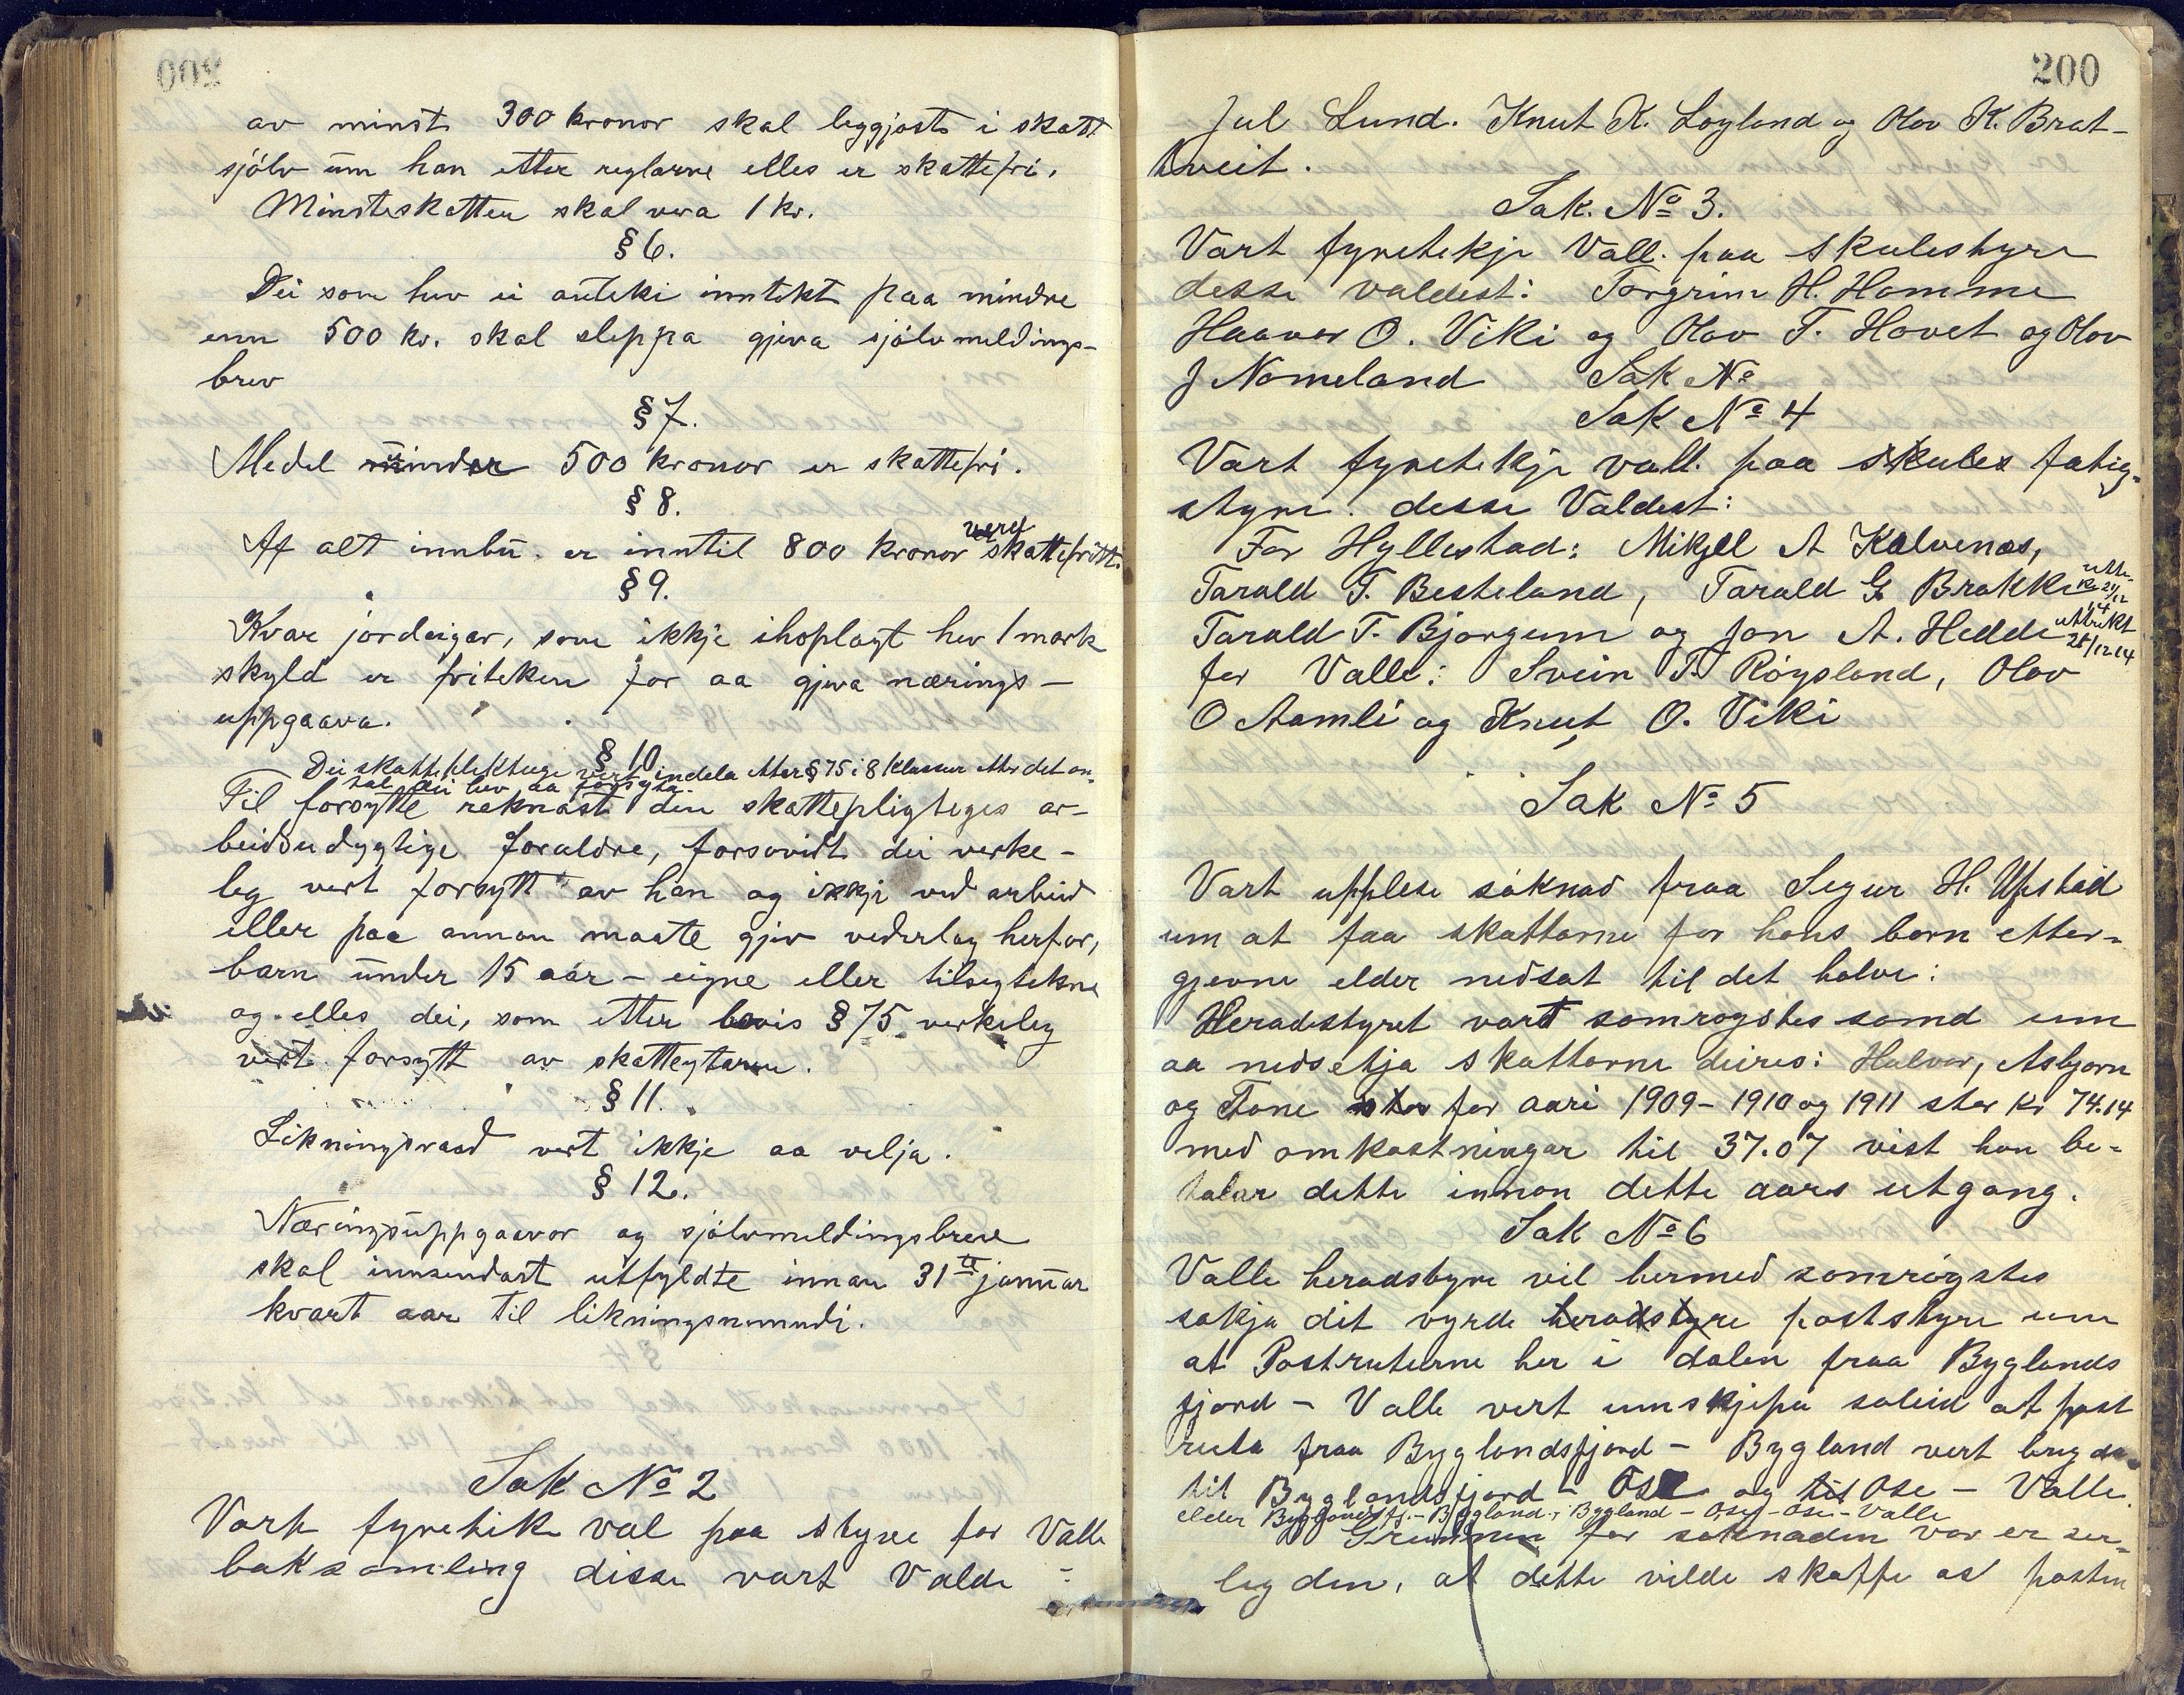 av minst 300 kronor skal leggjast i skatt
sjölv um han etter reglarne elles er skattefri.
Minsteskatten skal vera 1 kr.
§ 6.
Dei som hev ei anteki inntekt paa mindre
enn 500 kr. skal sleppa gjeva sjölvmeldings-
brev
§ 7.
Medel minder 500 kronor er skattefri.
§ 8.
Af alt innbu er inntil 800 kronor verd skattefritt.
§ 9.
Kvar jordeigar, som ikkje ihoplagt hev 1 mark
skyld er friteken for aa gjeva nærings-
uppgaava.
§ 10
Dei skattepliktuge vert indela etter § 75 i 8 klassur etter det an-
tal dei hev aa forsyta.
Til forsytte reknast den skattepligteges ar-
beidsudygtige foraldre, forsovidt dei verke-
leg vert forsytt av han og ikkje ved arbeid
eller paa annan maate gjev vederlag herfor,
barn under 15 aar - eigne eller tilsegtekne
og elles dei, som etter bevis § 75 verkeleg
vert forsytt av skatteytaren.
§ 11.
Likningsraad vert ikkje aa velja.
§ 12.
Næringsuppgaavor og sjölvmeldingsbreve
skal innsendast utfyldte innan 31te januar
kvart aar til likningsnemndi.
Sak No 2
Vart fyretik val paa styre for Valle
boksamling disse vart Valde :
200
Jul Lund. Knut K. Löyland og Olov K. Brat-
tveit.
Sak. No 3.
Vart fyretekje Vall. paa skulestyre
desse valdest: Torgrim H. Homme
Haavor O. Viki og Olov T. Hovet og Olov
J Nomeland Sak No
Sak No 4
Vart fyretekje vall. paa skules fatig-
styre. desse Valdest:
For Hyllestad: Mikjell A Kalvenas,
Tarald T. Besteland, Tarald G. Brokke
Tarald T. Bjorgum og Jon A. Hedde uttrekt 28/12 14
for Valle: Svein T. Röysland, Olov
O Aamli og Knut O. Viki
Sak No 5
Vart upplese söknad fraa Segur H. Upstad
um at faa skattarne for hans born etter-
gjevne elder nedsat til det halve:
Heradstyret vart samrøystes samd um
aa nedsetja skattarne deires: Halvor, Asbjorn
og Tone for aari 1909 - 1910 og 1911 stor kr 74.14
med omkostningar til 37.07 vist han be-
talar dette innan dette aars utgang.
Sak No 6
Valle heradstyre vil hermed samrøystes
sökja dit vyrde heradstyre poststyre um
at Postruterne her i dalen fraa Byglands
fjord - Valle vert umskjipa soleid at post
ruta fraa Byglandsfjord - Bygland vert bryda
til Byglandsfjord - Ose og til Ose - Valle.
elder Byglandsfj. - Bygland, Bygland - Ose - Ose - Valle
Grunnen for søknaden vor er ser-
leg den, at dette vilde skaffe os posten